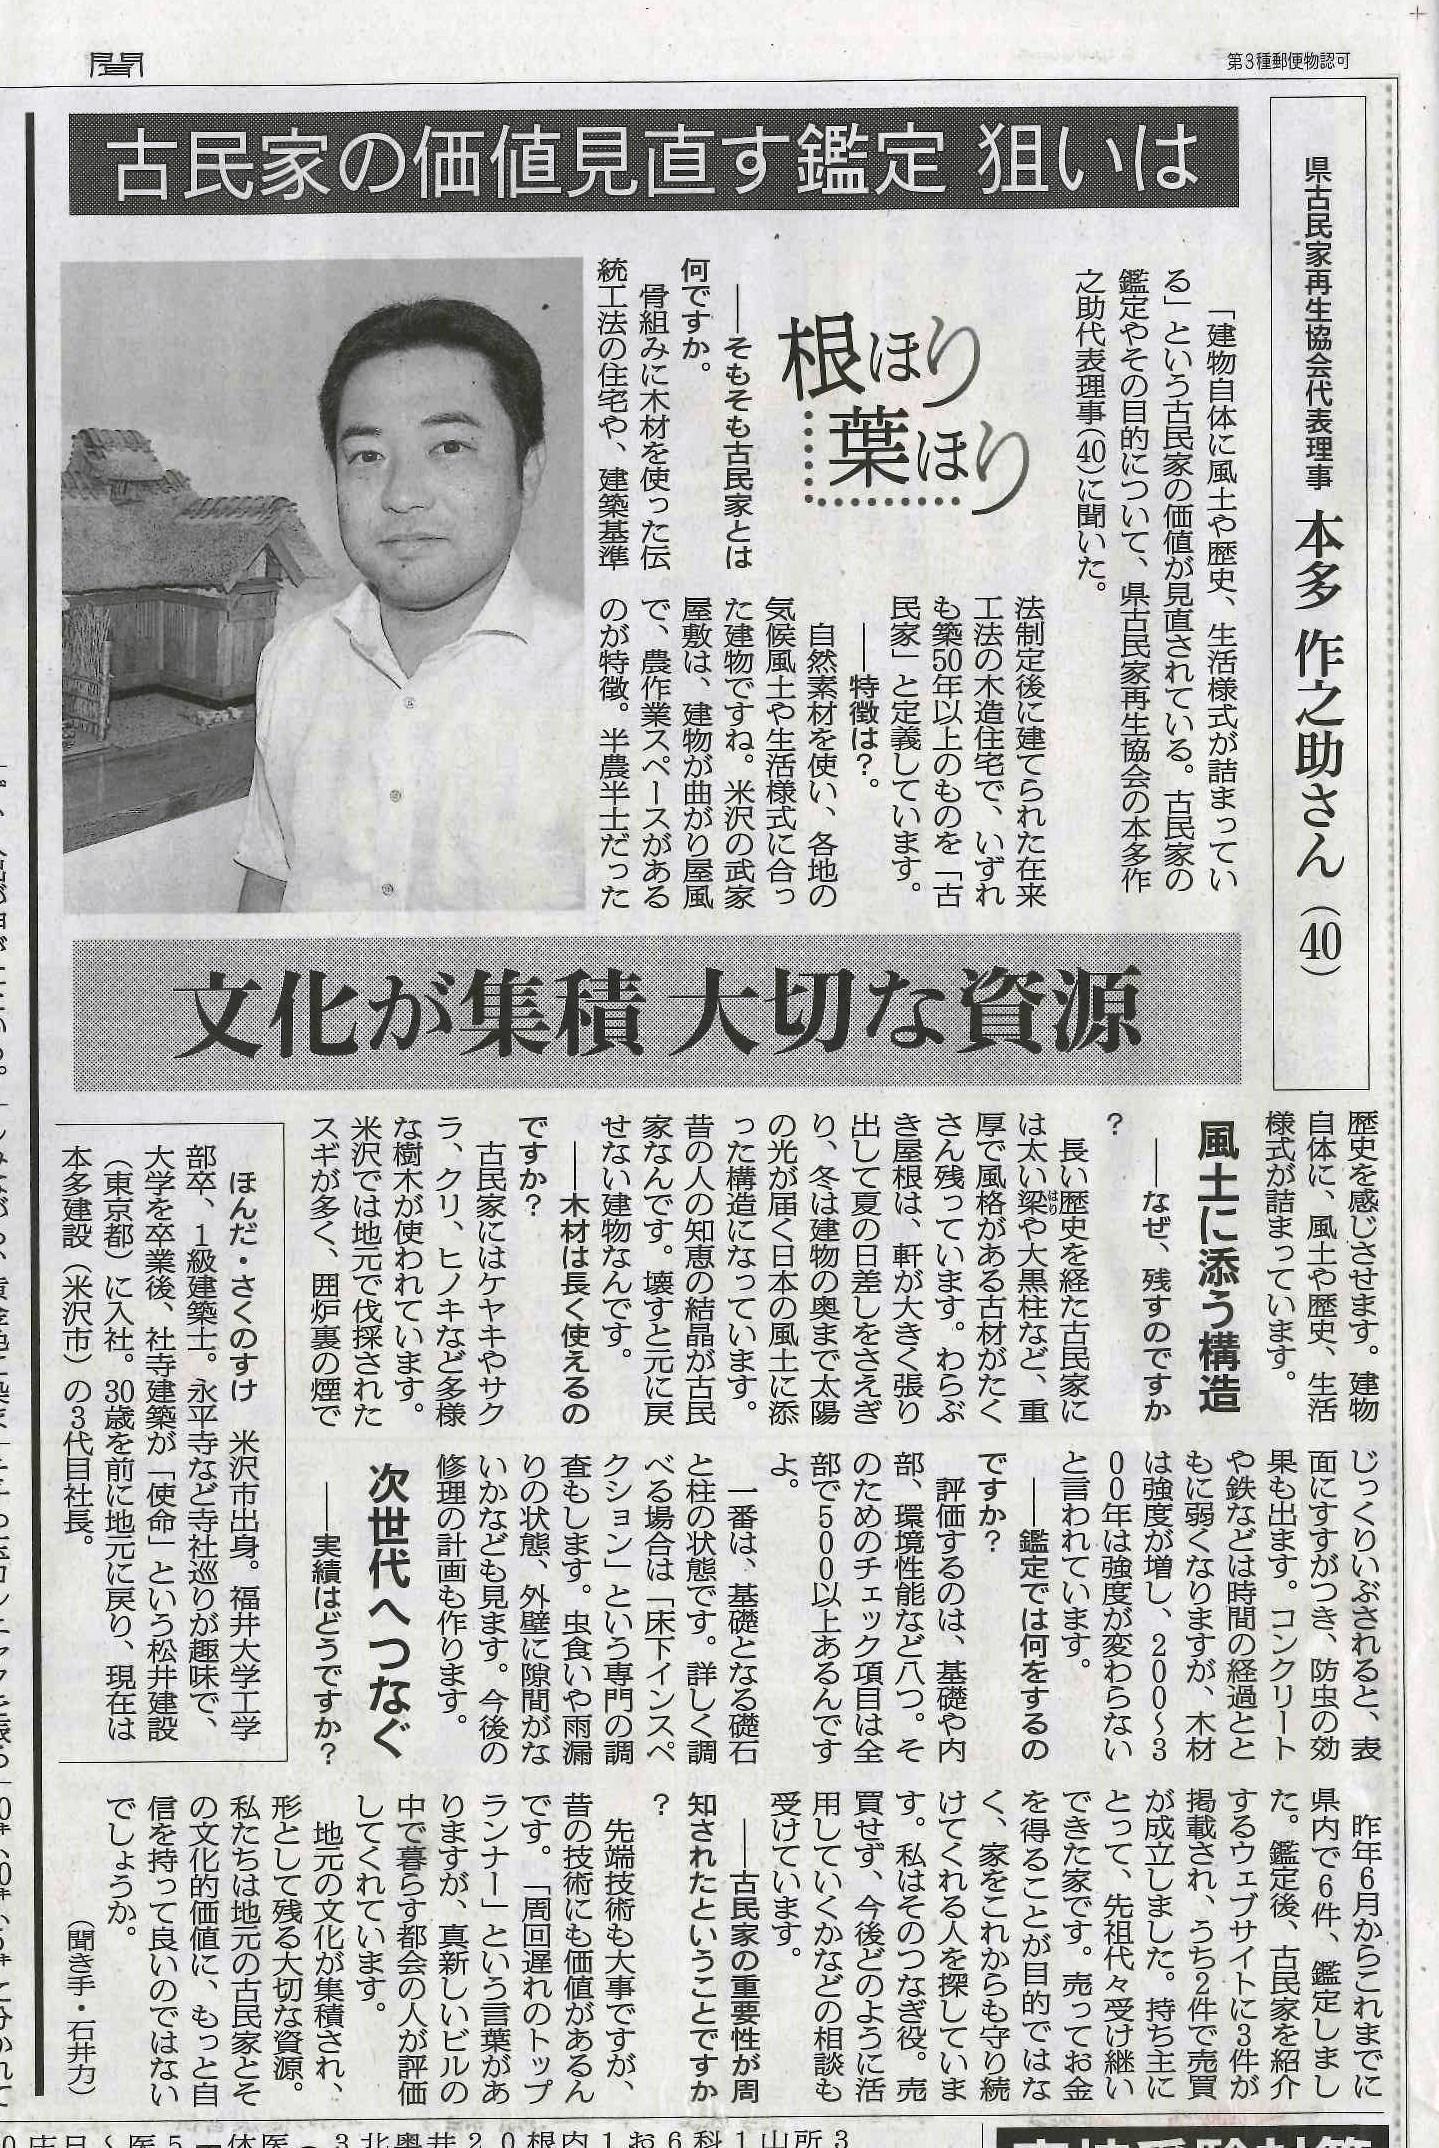 聞
第3種郵便物認可
古民家の価値見直す鑑定 狙いは
県古民家再生協会代表理事 本多 作之助さん(40)
「建物自体に風土や歴史、生活様式が詰まってい
る」という古民家の価値が見直されている。古民家の
鑑定やその目的について、県古民家再生協会の本多作
之助代表理事(40)に聞いた。
根ほり
葉ほり
――そもそも古民家とは
何ですか。
骨組みに木材を使った伝
統工法の住宅や、建築基準
法制定後に建てられた在来
工法の木造住宅で、いずれ
も築50年以上のものを「古
民家」と定義しています。
――特徴は?。
自然素材を使い、各地の
気候風土や生活様式に合っ
た建物ですね。米沢の武家
屋敷は、建物が曲がり屋風
で、農作業スペースがある
のが特徴。半農半士だった
文化が集積 大切な資源
歴史を感じさせます。建物
自体に、風土や歴史、生活
様式が詰まっています。
風土に添う構造
――なぜ、残すのですか
?
長い歴史を経た古民家に
は太い梁(はり)や大黒柱など、重
厚で風格がある古材がたく
さん残っています。わらぶ
き屋根は、軒が大きく張り
出して夏の日差しをさえぎ
り、冬は建物の奥まで太陽
の光が届く日本の風土に添
った構造になっています。
昔の人の知恵の結晶が古民
家なんです。壊すと元に戻
せない建物なんです。
――木材は長く使えるの
ですか?
古民家にはケヤキやサク
ラ、クリ、ヒノキなど多様
な樹木が使われています。
米沢では地元で伐採された
スギが多く、囲炉裏の煙で
じっくりいぶされると、表
面にすすがつき、防虫の効
果も出ます。コンクリート
や鉄などは時間の経過とと
もに弱くなりますが、木材
は強度が増し、200~3
00年は強度が変わらない
と言われています。
――鑑定では何をするの
ですか?
評価するのは、基礎や内
部、環境性能など八つ。そ
のためのチェック項目は全
部で500以上あるんです
よ。
一番は、基礎となる礎石
と柱の状態です。詳しく調
べる場合は「床下インスペ
クション」という専門の調
査もします。虫食いや雨漏
りの状態、外壁に隙間がな
いかなども見ます。今後の
修理の計画も作ります。
次世代へつなぐ
――実績はどうですか?
昨年6月からこれまでに
県内で6件、鑑定しまし
た。鑑定後、古民家を紹介
するウェブサイトに3件が
掲載され、うち2件で売買
が成立しました。持ち主に
とって、先祖代々受け継い
できた家です。売ってお金
を得ることが目的ではな
く、家をこれからも守り続
けてくれる人を探していま
す。私はそのつなぎ役。売
買せず、今後どのように活
用していくかなどの相談も
受けています。
――古民家の重要性が周
知されたということですか
?
先端技術も大事ですが、
昔の技術にも価値があるん
です。「周回遅れのトップ
ランナー」という言葉があ
りますが、真新しいビルの
中で暮らす都会の人が評価
してくれています。
地元の文化が集積され、
形として残る大切な資源。
私たちは地元の古民家とそ
の文化的価値に、もっと自
信を持って良いのではない
でしょうか。
(聞き手・石井力)
ほんだ・さくのすけ 米沢市出身。福井大学工学
部卒、1級建築士。永平寺など寺社巡りが趣味で、
大学を卒業後、社寺建築が「使命」という松井建設
(東京都)に入社。30歳を前に地元に戻り、現在は
本多建設(米沢市)の3代目社長。